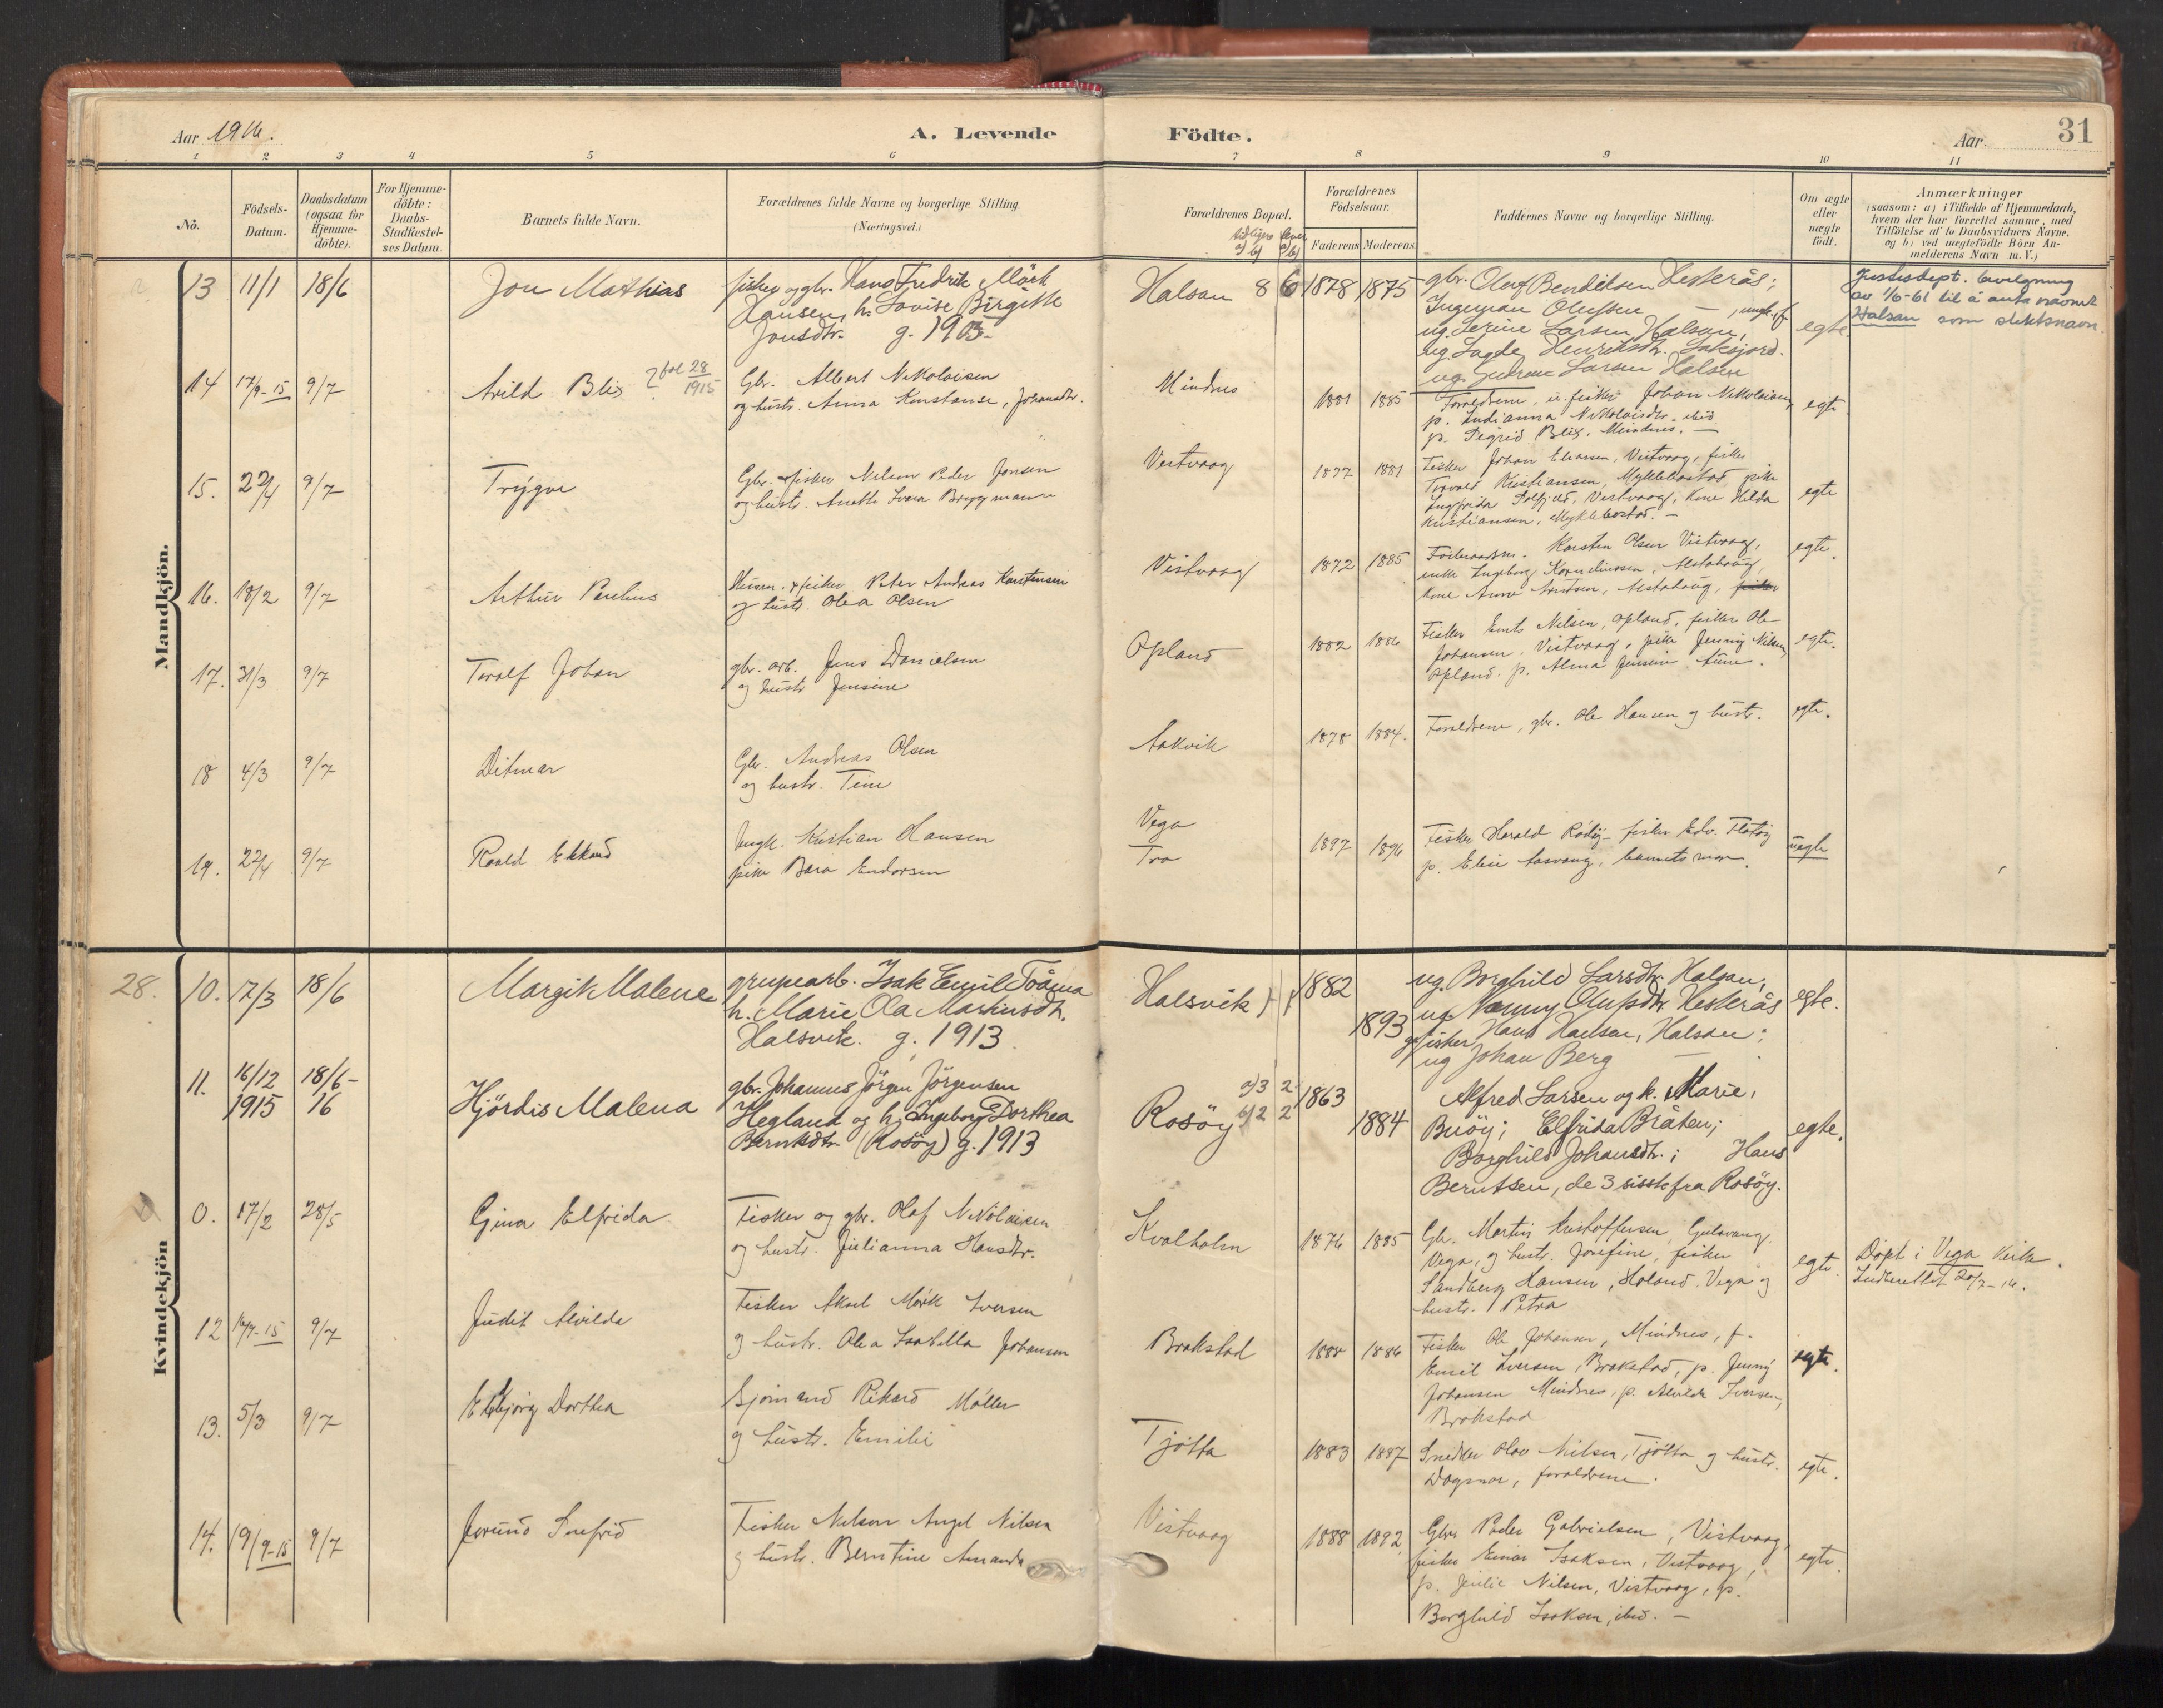 Aar 1916.
A. Levende
Födte.
Aar
31
1 2 3 4 5 6 7 8 9 10 11
No.
Födsels-
Datum.
Daabsdatum
(ogsaa for
Hjemme-
döbte).
For Hjemme-
döbte:
Daabs-
Stadfæstel-
ses Datum.
Barnets fulde Navn.
Forældrenes fulde Navne og borgerlige Stilling.
(Næringsvei.)
Forældrenes Bopæl.
Forældrenes
Födselsaar.
Faderens Moderens
Faddernes Navne og borgerlige Stilling.
Om ægte
eller
uægte
født.
Anmærkninger
(saasom: a) i Tilfælde af Hjemmedaab,
hvem der har forrettet samme, med
Tilföielse af to Daabsvidners Navne,
og b) ved uægtefödte Börn An-
melderens Navn m. V.)
Mandkjön.
13 11/1 18/6
Jon Mathias
fisker og gbr. Hans Fredrik Mörk
Hansen, h. Lovise Birgitte
Jonsdtr. g. 1905
Halsan 8 6 1878 1875
gbr. Oluf Bendiksen Hesterås;
Ingeman Olufsen
ug. Serine Larsen Halsan,
ug. Henriksdtr.
Larsen Halsan
egte.
Justisdept. bevilgning
av 1/6-61 til å anta navnet
Halsan som slektsnavn.
14 17/9-15 9/7
Arild Blix
28
1915
Gbr. Albert Nikolaisen
og hustr. Anna Konstanse, Johansdtr.
Mindnes
1881 1885
Forældrene, fisker Johan Nikolaisen,
p. Nikolaisdtr. ibid
p. Sigrid Blix, Mindnes. —
egte
15. 22/4 9/7
Trygve
Gbr. & fisker Nilson Peder Jonsen
og hustr. Anette Bryggmann
Vestvaag
1877 1881
Fisker Johan Eliassen, Vistvaag, fisker
Torvald Kristiansen, Myklebostad, pike
Vestvaag, Kone Hilda
Kristiansen, Myklebostad. —
egte
16. 18/2 9/7
Arthur Paulius
Husm. & fisker Peter Andreas Karstensen
og hustr. Olea Olsen
Vistvaag
1872 1885
Karsten Olsen Vistvaag,
enke Ingeborg Korneliussen, Alstahaug,
kone Anne Arntsen, Alstahaug,
egte.
17. 31/3 9/7
Toralf Johan
gbr. arb. Jens Danielsen
og hustr Jensine
Opland
1882 1886
Fisker Nilsen, Opland, fisker Ole
Johansen, Vistvaag, pike Jenny Nilsen,
Opland. p. Alma Jensine Aune.
egte.
18 4/3 9/7
Ditmar
Gbr. Andreas Olsen
og hustr. Tine
Aakvik
1878 1884.
Forældrene, gbr. Ole Hansen og hustr.
egte.
19. 22/4 9/7
Roald Ekkard
Ungk. Kristian Hansen
pike Bara Endorsen
Vega
Tro
1897 1896
Fisker Harald Rødøy - fisker Edv. Flotøy
p. Elise Aasvang, barnets mor.
uegte
Kvindekjön
28.
10. 17/3 18/6
Margit Malene
grupearb. Isak Emil Toåma
h. Marie Ola Markusdtr.
Halsvik. g. 1913.
Halsvik
1882
1893
ug. Borghild Larsdtr. Halsan,
ug. Nanny Olufsdtr. Hesterås
fisker Hans Hansen, Halsan;
ug Johan Berg
egte.
11. 16/12 18/6-
1915 16
Hjördis Malena
gbr. Johannes Jörgen Jörgensen
Hegland og h. Ingeborg Dorthea
Berntsdtr. (Rosöy) g. 1913
a) 3 2
Rosöy b) 2 2
1863
1884
Alfred Larsen og k. Marie,
Buöy; Elfrida Bråten;
Borghild Johansdtr.; Hans
Berntsen, de 3 sisste fra Rosöy.
egte.
0. 17/2 28/5
Gina Elfrida
Fisker og gbr. Olaf Nikolaisen
og hustr. Julianna Hansdtr.
Kvalholm
1876 1885
Gbr. Martin Kristoffersen, Gulsvaag,
Vega, og hustr. Josefine, fisker
Sandberg Hansen, Holand, Vega og
hustr. Petra
egte.
Döpt i Vega kirke.
Indberettet 20/7-16.
12 16/9-15 9/7
Judit Alvilda
Fisker Aksel Mørk Iversen
og hustr. Olea Isabella Johansen
Brakstad
1888 1886
Fisker Ole Johansen, Mindnes, f.
Emil Iversen, Brakstad, p. Jenny
Johansen Mindnes, p. Alvilde Iversen,
Brakstad
egte.
13. 5/3 9/7
Ekbjörg Dorthea
Sjömand Rikard Möller
og hustr. Emilie
Tjötta
1883 1887
Snedker Olav Nilsen, Tjötta og hustr.
Dagmar, forældrene.
egte.
14. 19/9-15 9/7
Jorund Snefrid
Fisker Nilson Angel Nilsen
og hustr. Berntine Amanda
Vistvaag
1888 1892
Gbr. Peder Gabrielsen, Vistvaag,
fisker Einar Isaksen, Vistvaag,
p. Julie Nilsen, Vistvaag, p.
Borghild Isaksen, ibid. —
egte.